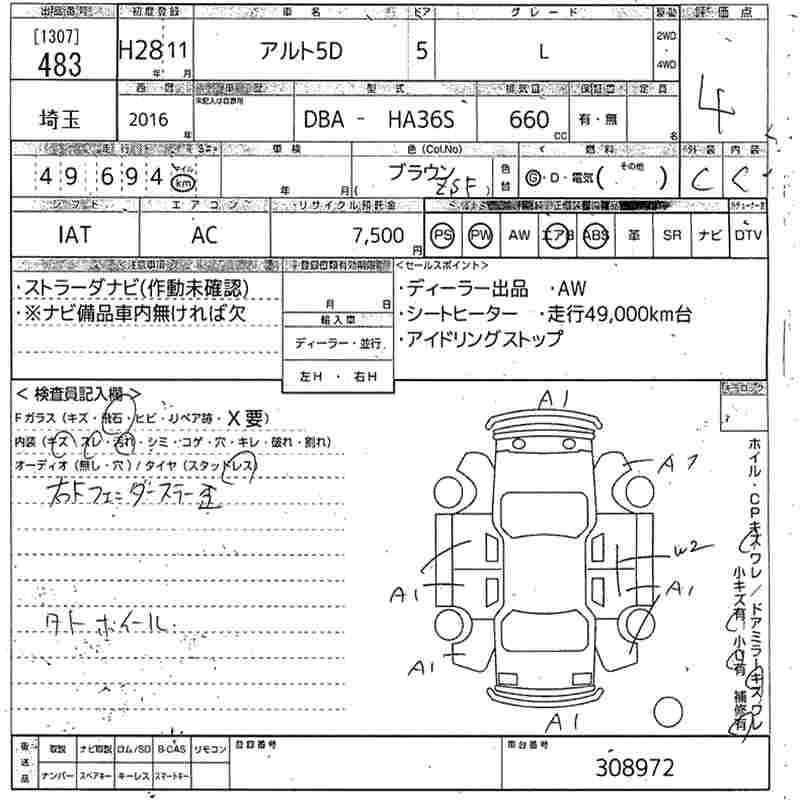 出品番号 初度登録 車名 ドア グレード 駆動 評価点
[1307]
483 H28 11 アルト5D 5 L 2WD・4WD 4
年 月
西暦 型式 排気量 保証書 定員
未記入は自家用
埼玉 2016年 DBA - HA36S 660cc 有・無 名
走行 車検 色(Col.No) 燃料 外装 内装
49694 マイル km 年 月 ブラウン (ZSF) 色替 G・D・電気(その他) C C
シフト エアコン リサイクル預託金
IAT AC 7,500円 PS PW AW エアB ABS 革 SR ナビ DTV
注意事項 登録書類有効期限 <セールスポイント>
・ストラーダナビ(作動未確認) ・ディーラー出品 ・AW
・※ナビ備品車内無ければ欠 月 日 ・シートヒーター ・走行49,000km台
輸入車 ・アイドリングストップ
ディーラー・並行
左H ・ 右H
<検査員記入欄>
Fガラス(キズ・飛石・ヒビ・リペア跡・X要)
内装(キズ・スレ・汚れ・シミ・コゲ・穴・キレ・破れ・割れ)
オーディオ(無し・穴)/タイヤ(スタッドレス)
右Fフェンダー
外ホイール
A1
A1
W2
A1
A1
A1
ホイール・CPキズワレ/ドアミラーキズワレ
小キズ有 小凹有 補修有
後送品 取説 ナビ取説 ロム/SD B-CAS リモコン 登録番号 車台番号
ナンバー スペアキー キーレス スマートキー 308972